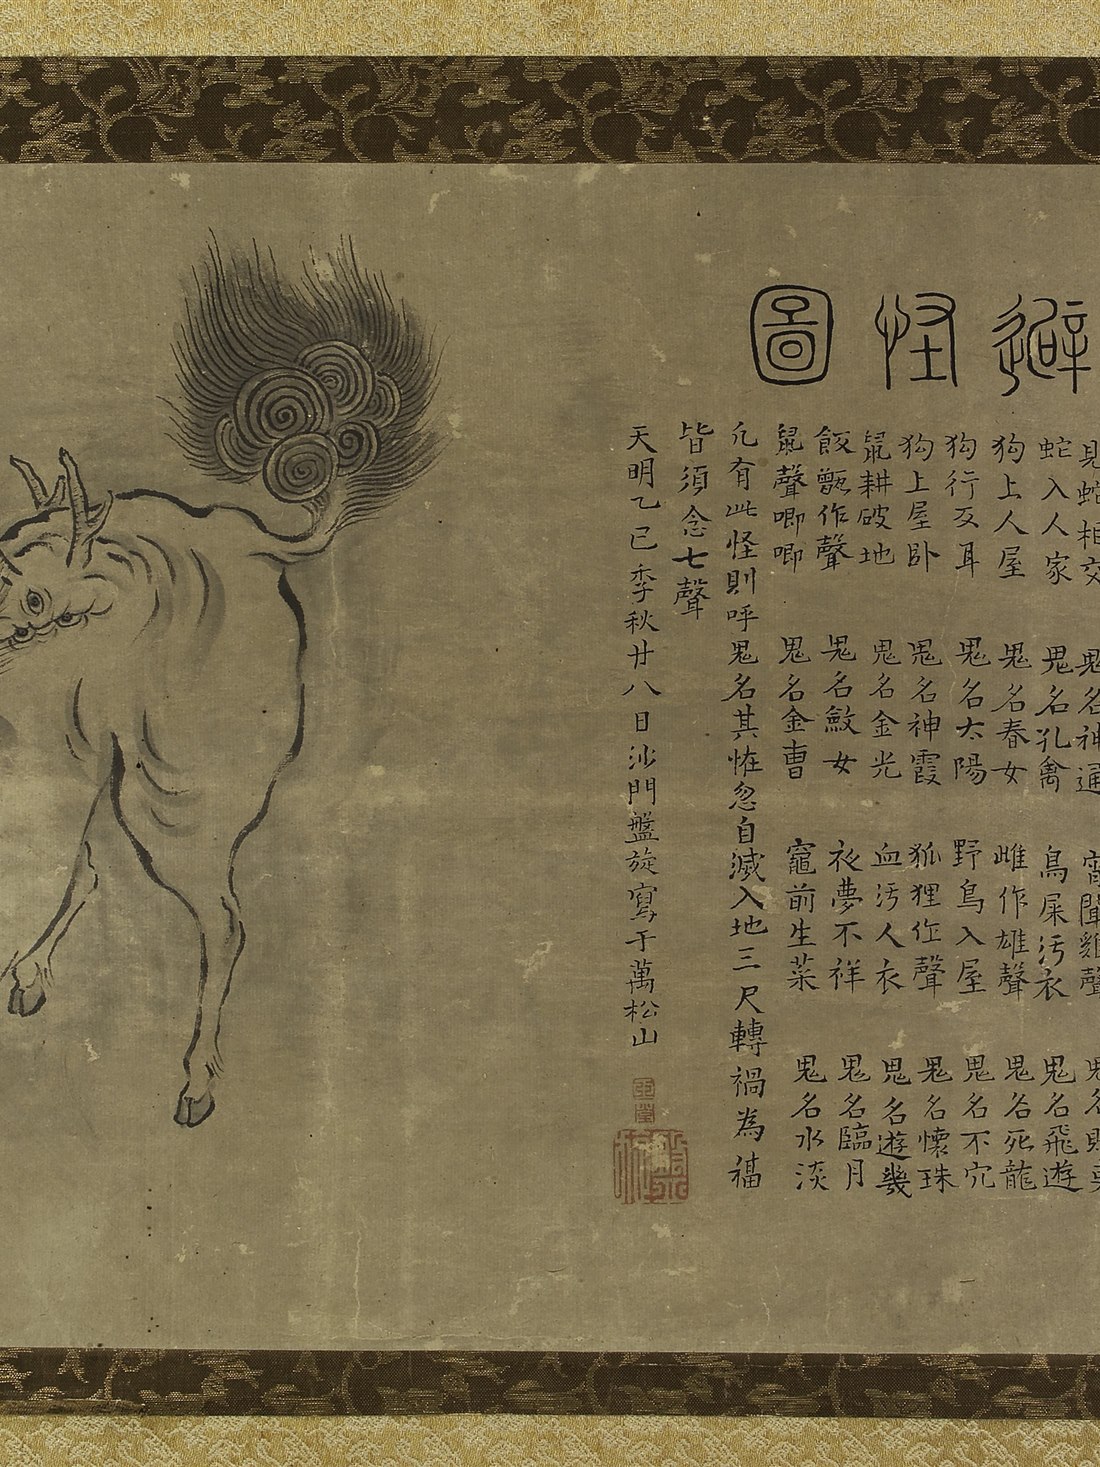 避怪圖
見蛇相交 鬼名神通 宵聞雞聲 鬼名
蛇入人家 鬼名孔禽 鳥屎污衣 鬼名飛遊
狗上人屋 鬼名春女 雌作雄聲 鬼名死龍
狗行反耳 鬼名太陽 野鳥入屋 鬼名不穴
狗上屋卧 鬼名神霞 狐狸作聲 鬼名懷珠
鼠耕破地 鬼名金光 血污人衣 鬼名遊幾
飯甑作聲 鬼名女 夜夢不祥 鬼名臨月
鼠聲唧唧 鬼名金曹 竈前生菜 鬼名水淡
凡有此怪則呼鬼名其恠忽自滅入地三尺轉禍為福
皆須念七聲
天明乙巳季秋廿八日沙門盤旋寫于萬松山